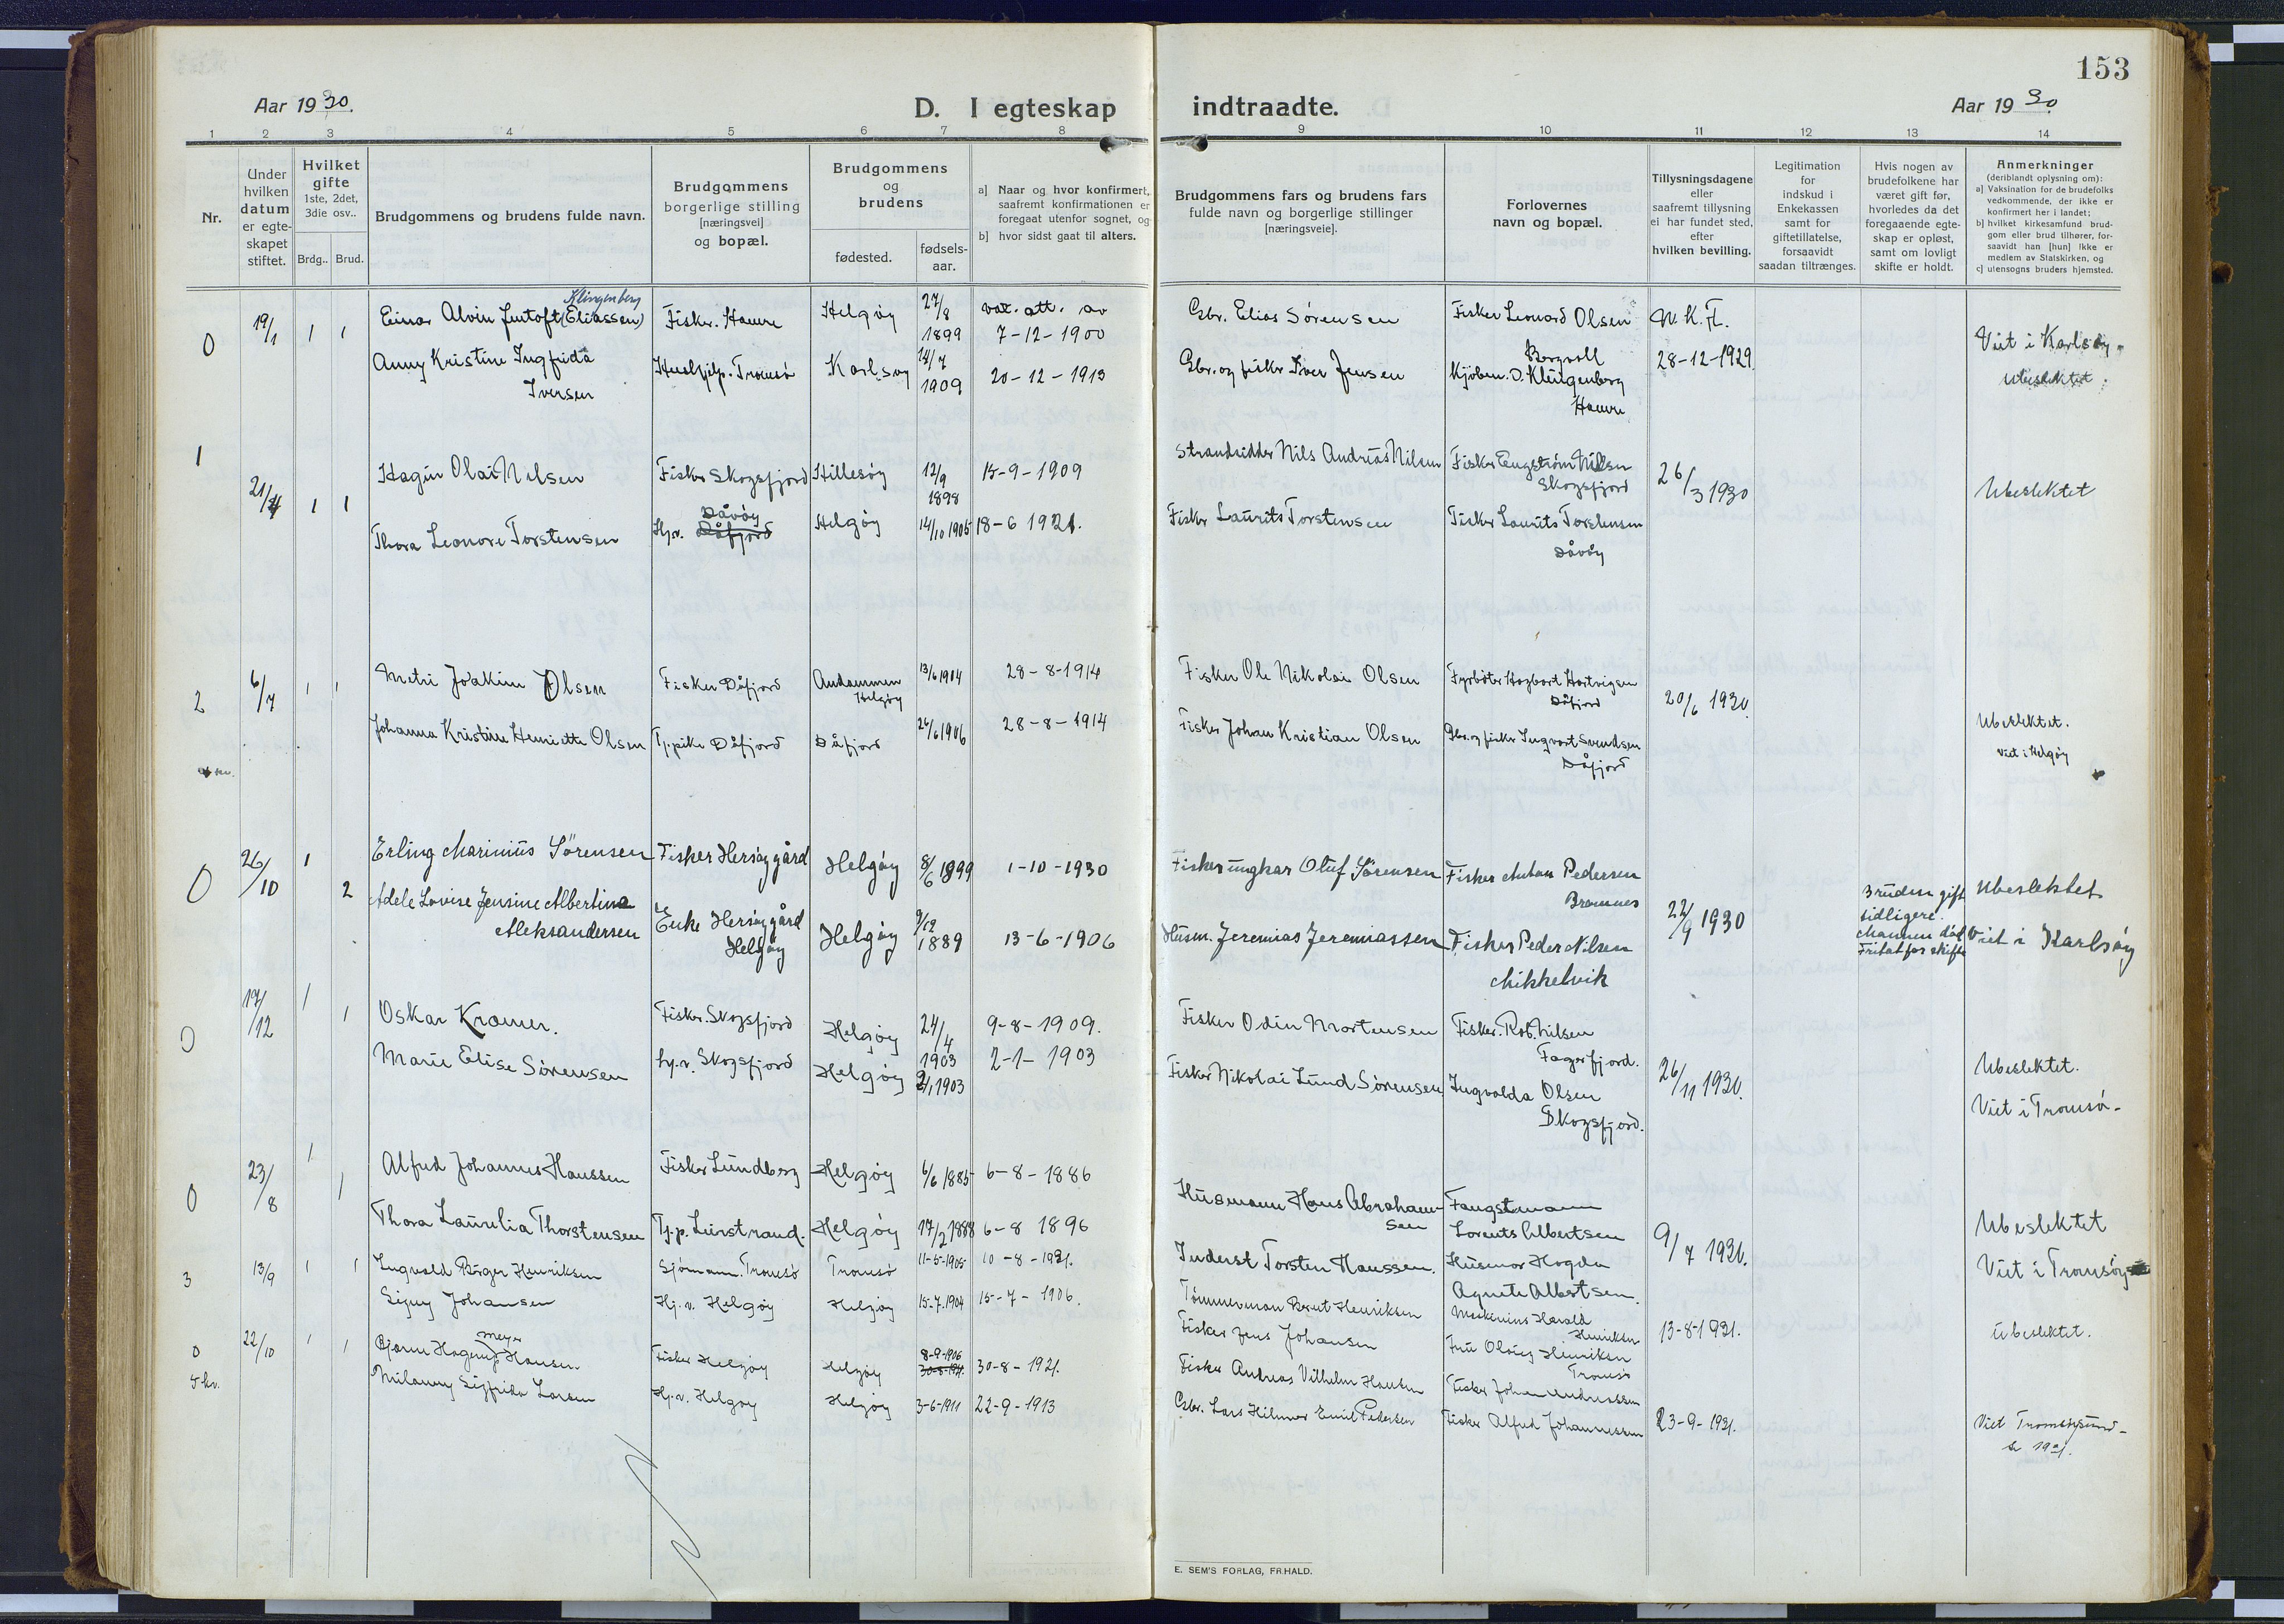 153
Aar 1930.
D. I egteskap
indtraadte.
Aar 1930.
1 2 3 4 5 6 7 8 9 10 11 12 13 14
Nr.
Under
hvilken
datum
er egte-
skapet
stiftet.
Hvilket
gifte
1ste, 2det,
3die osv..
Brdg.. Brud.
Brudgommens og brudens fulde navn.
Brudgommens
borgerlige stilling
[næringsvei]
og bopæl.
Brudgommens
og
brudens
fødested.
fødsels-
aar.
a] Naar og hvor konfirmert,
saafremt konfirmationen er
foregaat utenfor sognet, og
b] hvor sidst gaat til alters.
Brudgommens fars og brudens fars
fulde navn og borgerlige stillinger
[næringsveie].
Forlovernes
navn og bopæl.
Tillysningsdagene
eller
saafremt tillysning
ei har fundet sted,
efter
hvilken bevilling.
Legitimation
for
indskud i
Enkekassen
samt for
giftetillatelse,
forsaavidt
saadan tiltrænges.
Hvis nogen av
brudefolkene har
været gift før,
hvorledes da det
foregaaende egte-
skap er opløst,
samt om lovligt
skifte er holdt.
Anmerkninger
(deriblandt oplysning om):
a] Vaksination for de brudefolks
vedkommende, der ikke er
konfirmert her i landet;
b] hvilket kirkesamfund brud-
gom eller brud tilhører, for-
saavidt han [hun] ikke er
medlem av Statskirken, og
c] utensogns bruders hjemsted.
Klingenberg
0 19/1 1 1 Einar Alvin Jentoft (Eliassen) Fisker. Hamre Helgøy 27/8 1899 vac. att. av 7-12-1900 Gbr. Elias Sørensen Fisker Leonard Olsen Bergvoll N.K.Fl.
Anny Kristine Ingfrida
Iversen
Hushjelp. Tromsø Karlsøy 14/7 1909 20-12-1913 Gbr. og fisker Iver Jensen Kjøbm. O. Klingenberg
Hamre
28-12-1929.
Viet i Karlsøy.
Ubeslektet.
1 21/4 1 1 Hagin Olai Nilsen Fisker Skogsfjord Hillesøy 12/9 1898 15-9-1909 Strandsidder Nils Andrias Nilsen Fisker Engstrøm Nilsen
Skogsfjord
26/3 1930 Ubeslektet
Thora Leonore Torstensen Hj.v. Dåfjord Dåvøy Helgøy 14/10 1905 18-6 1921. Fisker Laurits Torstensen Fisker Laurits Torstensen
Dåvøy
2 6/7 1 1 Metri Joakim Olsen Fisker Dåfjord Andammen
Helgøy
13/6 1904 28-8-1914 Fisker Ole Nikolai Olsen Fyrbøter Hagbart Hartvigsen
Dåfjord
20/6 1930.
Johanna Kristine Henriette Olsen Tj.pike Dåfjord Dåfjord 26/6 1906 28-8-1914 Fisker Johan Kristian Olsen Gbr. og fisker Ingvart Svendsen
Dåfjord
Ubeslektet.
Viet i Helgøy
0 26/10 1 Erling Marinius Sørensen Fisker Hersøygård Helgøy 8/6 1899 1-10-1930 Fisker ungkar Oluf Sørensen Fisker Anton Pedersen
Bromnes
22/9 1930
2 Adele Lovise Jensine Albertina
Aleksandersen
Enke Hersøygård
Helgøy
Helgøy 9/12 1889 13-6-1906 Husm. Jeremias Jeremiassen Fisker Peder Nilsen
Mikkelvik
Bruden gift
tidligere.
Mannen død
Fritat for skifte
Ubeslektet
Viet i Karlsøy
0 17/12 1 1 Oskar Kramer. Fisker. Skogsfjord Helgøy 24/4 1903 9-8-1909. Fisker Odin Mortensen Fisker. Rob. Nilsen
Fagerfjord.
Marie Elise Sørensen Hj.v. Skogsfjord Helgøy 2/1 1903 2-1-1903 Fisker Nikolai Lund Sørensen Ingvolda Olsen
Skogsfjord.
26/11 1930.
Ubeslektet.
Viet i Tromsø.
0 23/8 1 1 Alfred Johannes Hanssen Fisker Lundberg Helgøy 6/6 1885 6-8-1886 Husmann Hans Abraham-
sen
Fangstmann
Lorents Albertsen
9/7 1930.
Thora Laurelia Thorstensen Tj.p. Leirstrand. Helgøy 17/2 1888 6-8 1896 Inderst Torsten Hanssen. Husmor Hogda
Agnete Albertsen.
Ubeslektet
Viet i Tromsøy
3 13/9 1 1 Ingvald Birger Henriksen Sjømann. Tromsø Tromsø 11-5-1905 10-8-1931. Tømmerman Bernt Henriksen Maskinins Harald
Henriksen
13-8-1931.
Signy Johansen Hj.v. Helgøy Helgøy 15-7.1904 15-7-1906. Fisker Jens Johansen Fru Olaug Henriksen
Tromsø
Ubeslektet.
0 22/10 1 1 Bjarne Hagerup Meyer Hansen Fisker Helgøy Helgøy 8-9-1906 30-8-1921. Fisker Andreas Vilhelm Hansen Fisker Johan Andreassen
Milanny Sigfrida Larsen Hj.v. Helgøy Helgøy 3-6-1911 22-9-1913 Gbr. Lars Hilmar Emil Pedersen Fisker Alfred Johannessen 23-9-1931.
E. SEM'S FORLAG, FR.HALD.